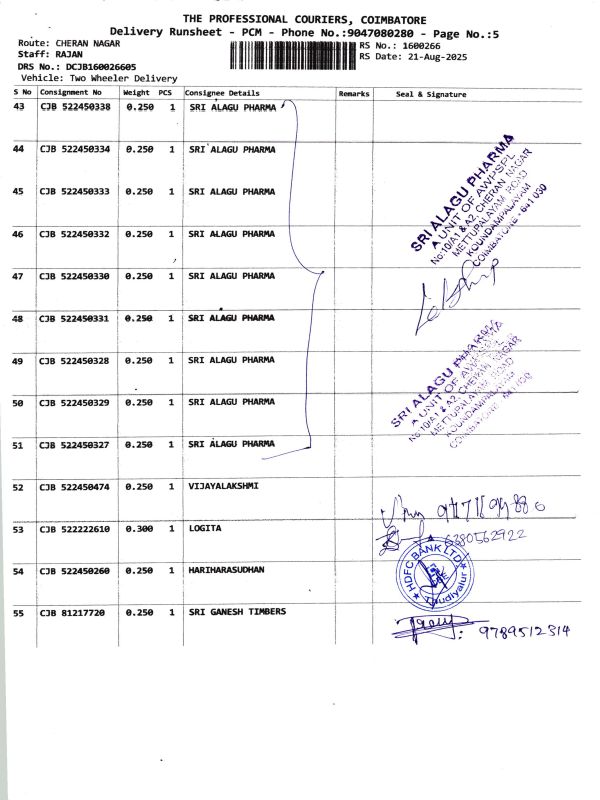 THE PROFESSIONAL COURIERS, COIMBATORE
Delivery Runsheet - PCM - Phone No.:9047080280 - Page No.:5
Route: CHERAN NAGAR
RS No.: 1600266
Staff: RAJAN
RS Date: 21-Aug-2025
DRS No.: DCJB160026605
Vehicle: Two Wheeler Delivery
S No Consignment No Weight PCS Consignee Details Remarks Seal & Signature
43 CJB 522450338 0.250 1 SRI ALAGU PHARMA
44 CJB 522450334 0.250 1 SRI ALAGU PHARMA
45 CJB 522450333 0.250 1 SRI ALAGU PHARMA
46 CJB 522450332 0.250 1 SRI ALAGU PHARMA
47 CJB 522450330 0.250 1 SRI ALAGU PHARMA
48 CJB 522450331 0.250 1 SRI ALAGU PHARMA
49 CJB 522450328 0.250 1 SRI ALAGU PHARMA
50 CJB 522450329 0.250 1 SRI ALAGU PHARMA
51 CJB 522450327 0.250 1 SRI ALAGU PHARMA
SRI ALAGU PHARMA
A UNIT OF AWPSPL
No:10/A1 & A2, CHERAN NAGAR
METTUPALAYAM ROAD
KOUNDAMPALAYAM
COIMBATORE - 641 030
SRI ALAGU PHARMA
A UNIT OF AWPSPL
No:10/A1 & A2, CHERAN NAGAR
METTUPALAYAM ROAD
KOUNDAMPALAYAM
COIMBATORE
52 CJB 522450474 0.250 1 VIJAYALAKSHMI
53 CJB 522222610 0.300 1 LOGITA
6380562922
54 CJB 522450260 0.250 1 HARIHARASUDHAN
HDFC BANK LTD
Thudiyalur
55 CJB 81217720 0.250 1 SRI GANESH TIMBERS
9789512314